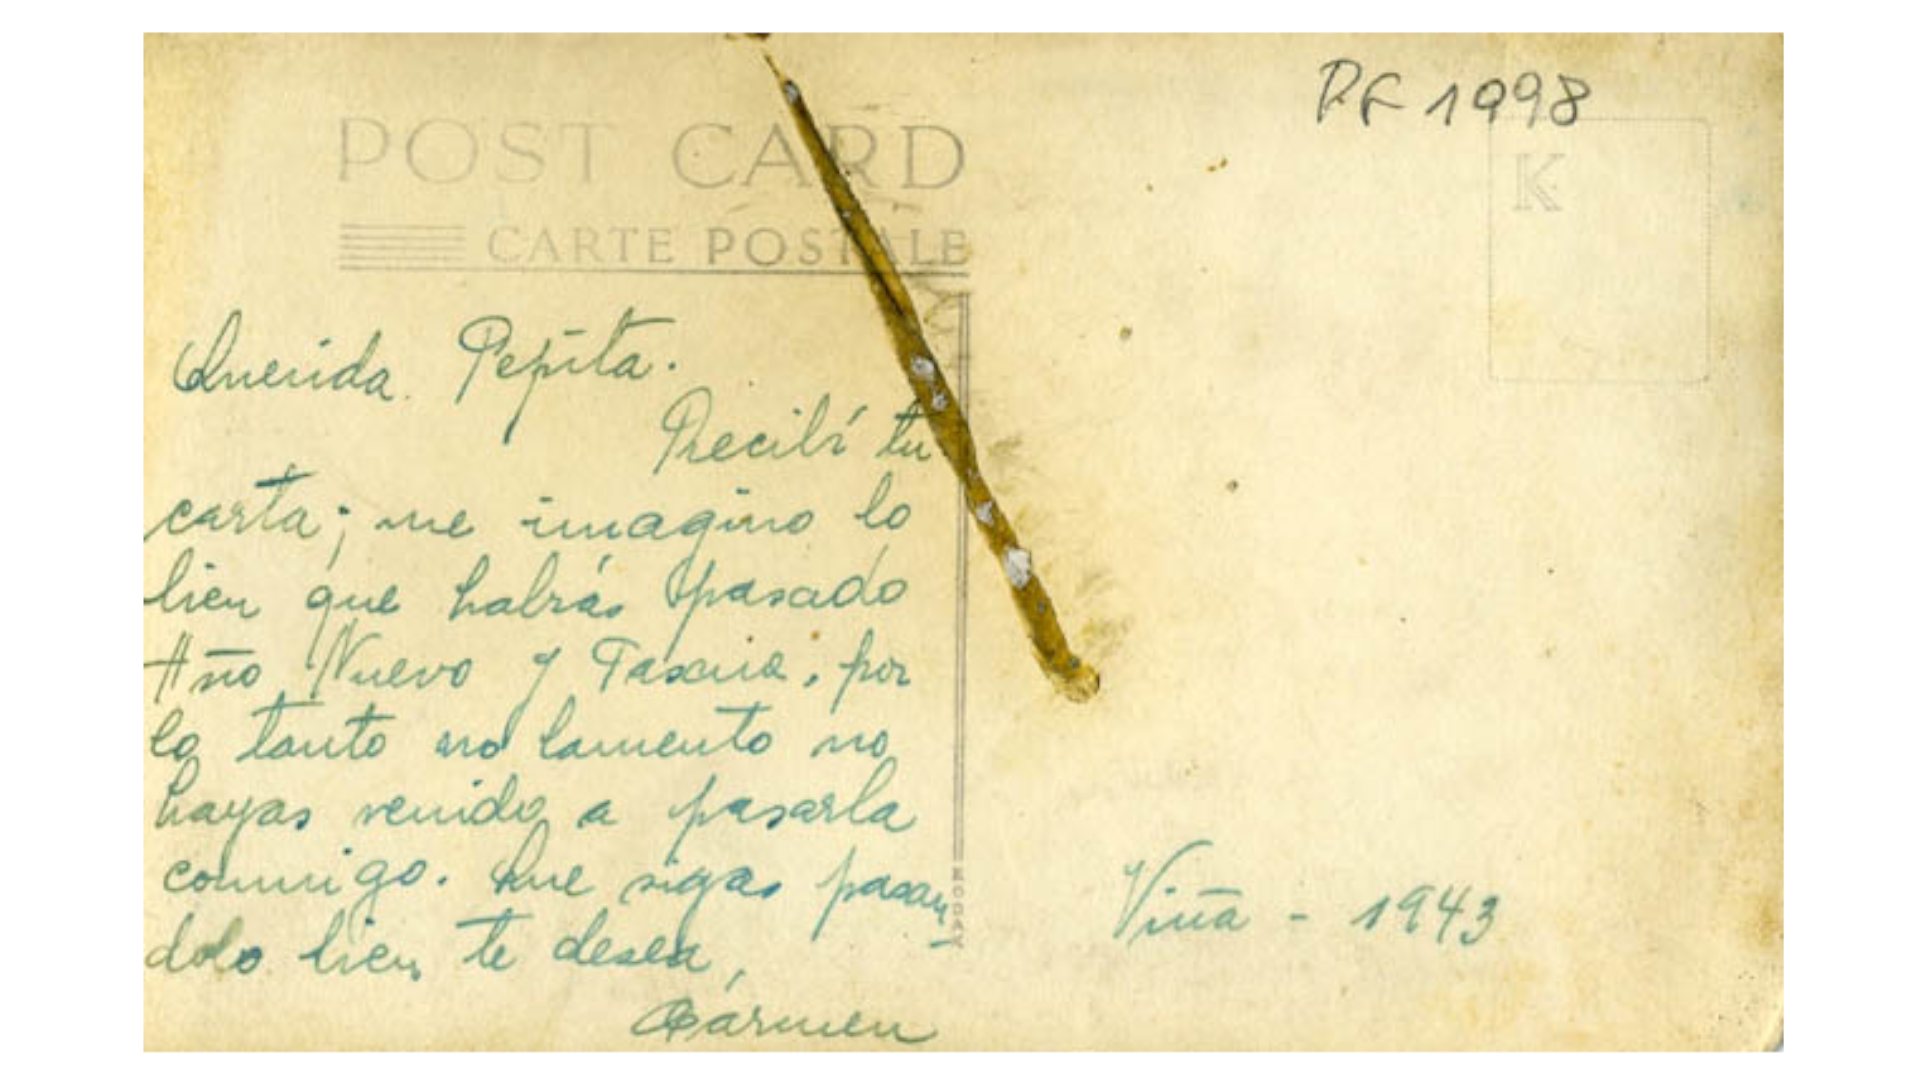 PF 1998
POST CARD
CARTE POSTALE
K
Querida Pepita.
Recibí tu
carta; me imagino lo
bien que habrás pasado
Año Nuevo y Pascua, por
lo tanto no lamento no
hayas venido a pasarla
conmigo. Que sigas pasan-
dolo bien te desea,
Cármen
KODAK
Viña - 1943